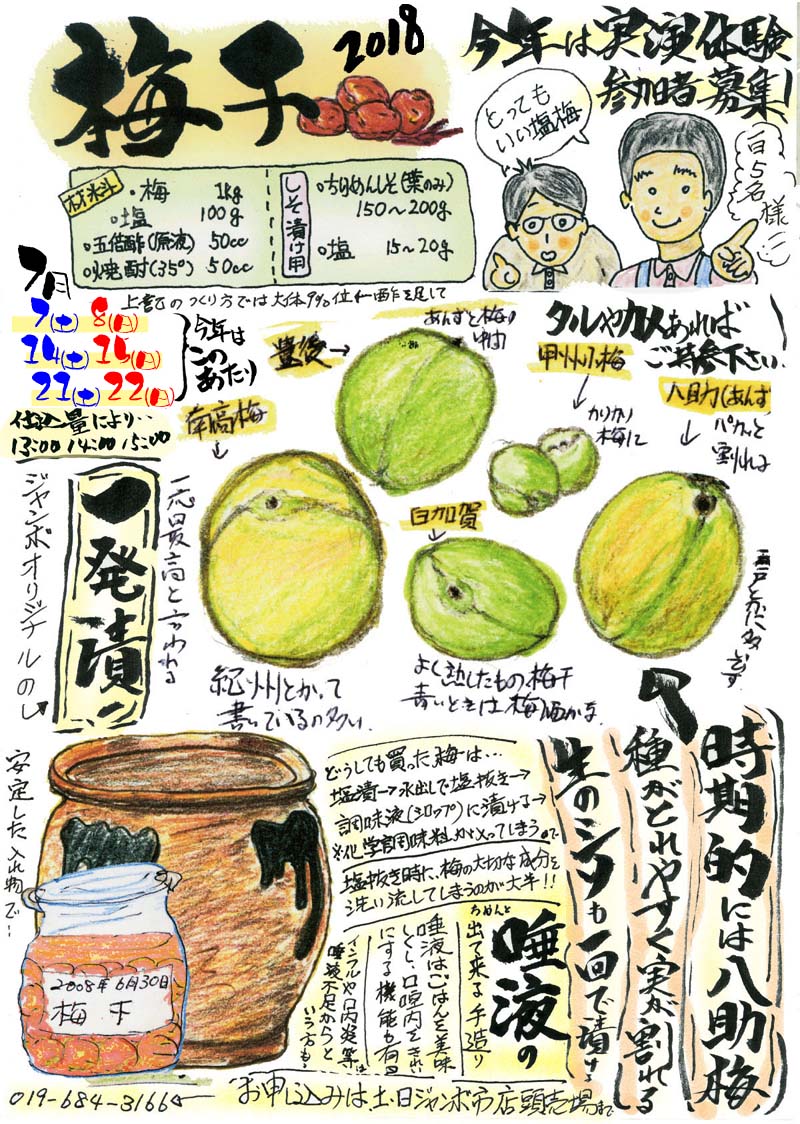 梅干
2018
今年は実演体験
参加者募集!
とっても
いい塩梅
一日5名様
材料
・梅 1kg
・塩 100g
・五倍酢(原液) 50cc
・焼酎(35°) 50cc
しそ漬け用
・ちりめんしそ(葉のみ)
150~200g
・塩 15~20g
上記のつくり方では大体9%位←酢を足して
7月
7(土) 8(日)
14(土) 15(日)
21(土) 22(日)
今年は
この
あたり
仕込量により‥
13:00 14:00 15:00
タルやカメあれば
ご持参下さい
豊後→
あんずと梅の
中間
甲州小梅
かりかり
梅に
八助(あんず
パカッと
割れる
南高梅
白加賀
一応最高と言われる
紀州とかって
書いているの多い
よく熟したもの梅干
青いときは梅酒かな
ジャンボオリジナルの
一発漬の
安定した入れ物で‥
2008年6月30日
梅干
どうしても買った梅は…
塩漬→水出しで塩抜き→
調味液(シロップ)に漬ける→
※化学調味料が入ってしまうので
塩抜き時に、梅の大切な成分を
洗い流してしまうのが大半!!
時期的には八助梅
種がとれやすく実が割れる
生のシソも一回で漬ける
唾液の
ちゃんと
出て来る手造り
唾液はごはんを美味
しくし、口腔内をきれい
にする機能も有り
インフルや口内炎等は
唾液不足からと
いう方も
019-684-3166←
お申し込みは、土・日ジャンボ市店頭売場まで